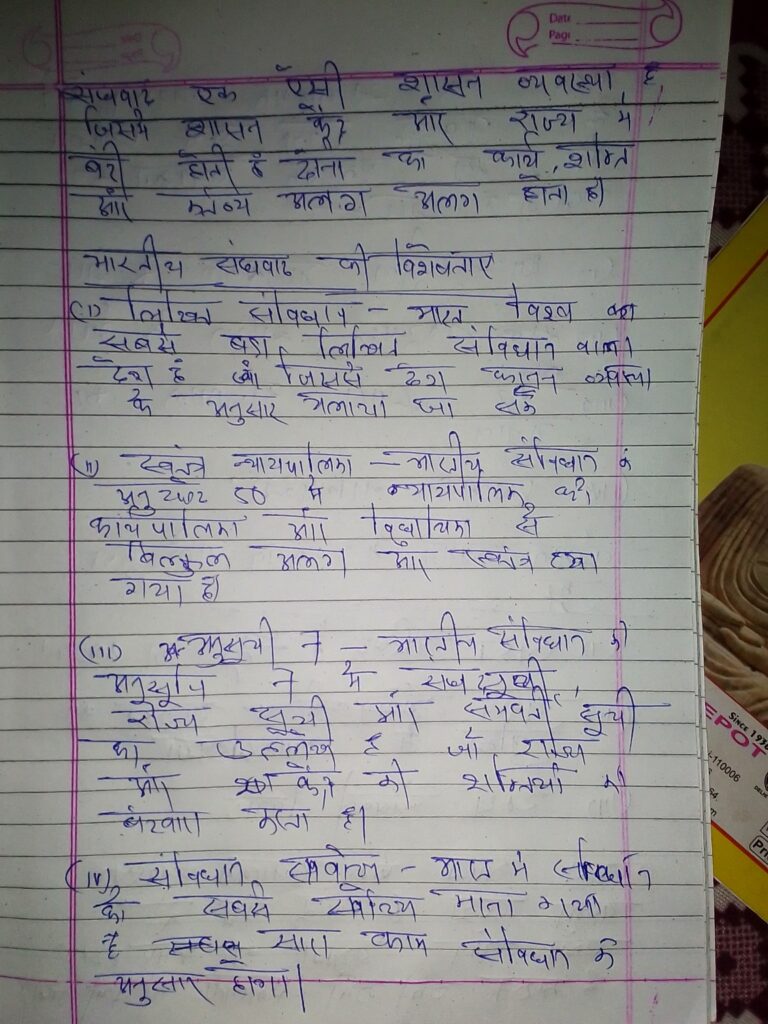 Date
Page
संघवाद एक ऐसी शासन व्यवस्था है
जिसमे शासन केंद्र और राज्य मे
बंटी होती है दोनो का कार्य, शक्ति
और कर्तव्य अलग अलग होता है।
भारतीय संघवाद की विशेषताए
(i) लिखित संविधान - भारत विश्व का
सबसे बड़ा लिखित संविधान वाला
देश है जिससे देश कानून व्यवस्था
के अनुसार चलाया जा सके
(ii) स्वतंत्र न्यायपालिका - भारतीय संविधान के
अनुच्छेद 50 मे न्यायपालिका को
कार्यपालिका और विधायिका से
बिल्कुल अलग और स्वतंत्र रखा
गया है।
(iii) अनुसूची 7 - भारतीय संविधान की
अनुसूचि 7 मे संघ सूची,
राज्य सूची और समवर्ती सूची
का उल्लेख है जो राज्य
और केंद्र की शक्तियों का
बंटवारा करता है।
(iv) संविधान सर्वोच्च - भारत मे संविधान
को सबसे सर्वोच्च माना गया
है सारा काम संविधान के
अनुसार होगा।
Since 1936
EPOT
-110006